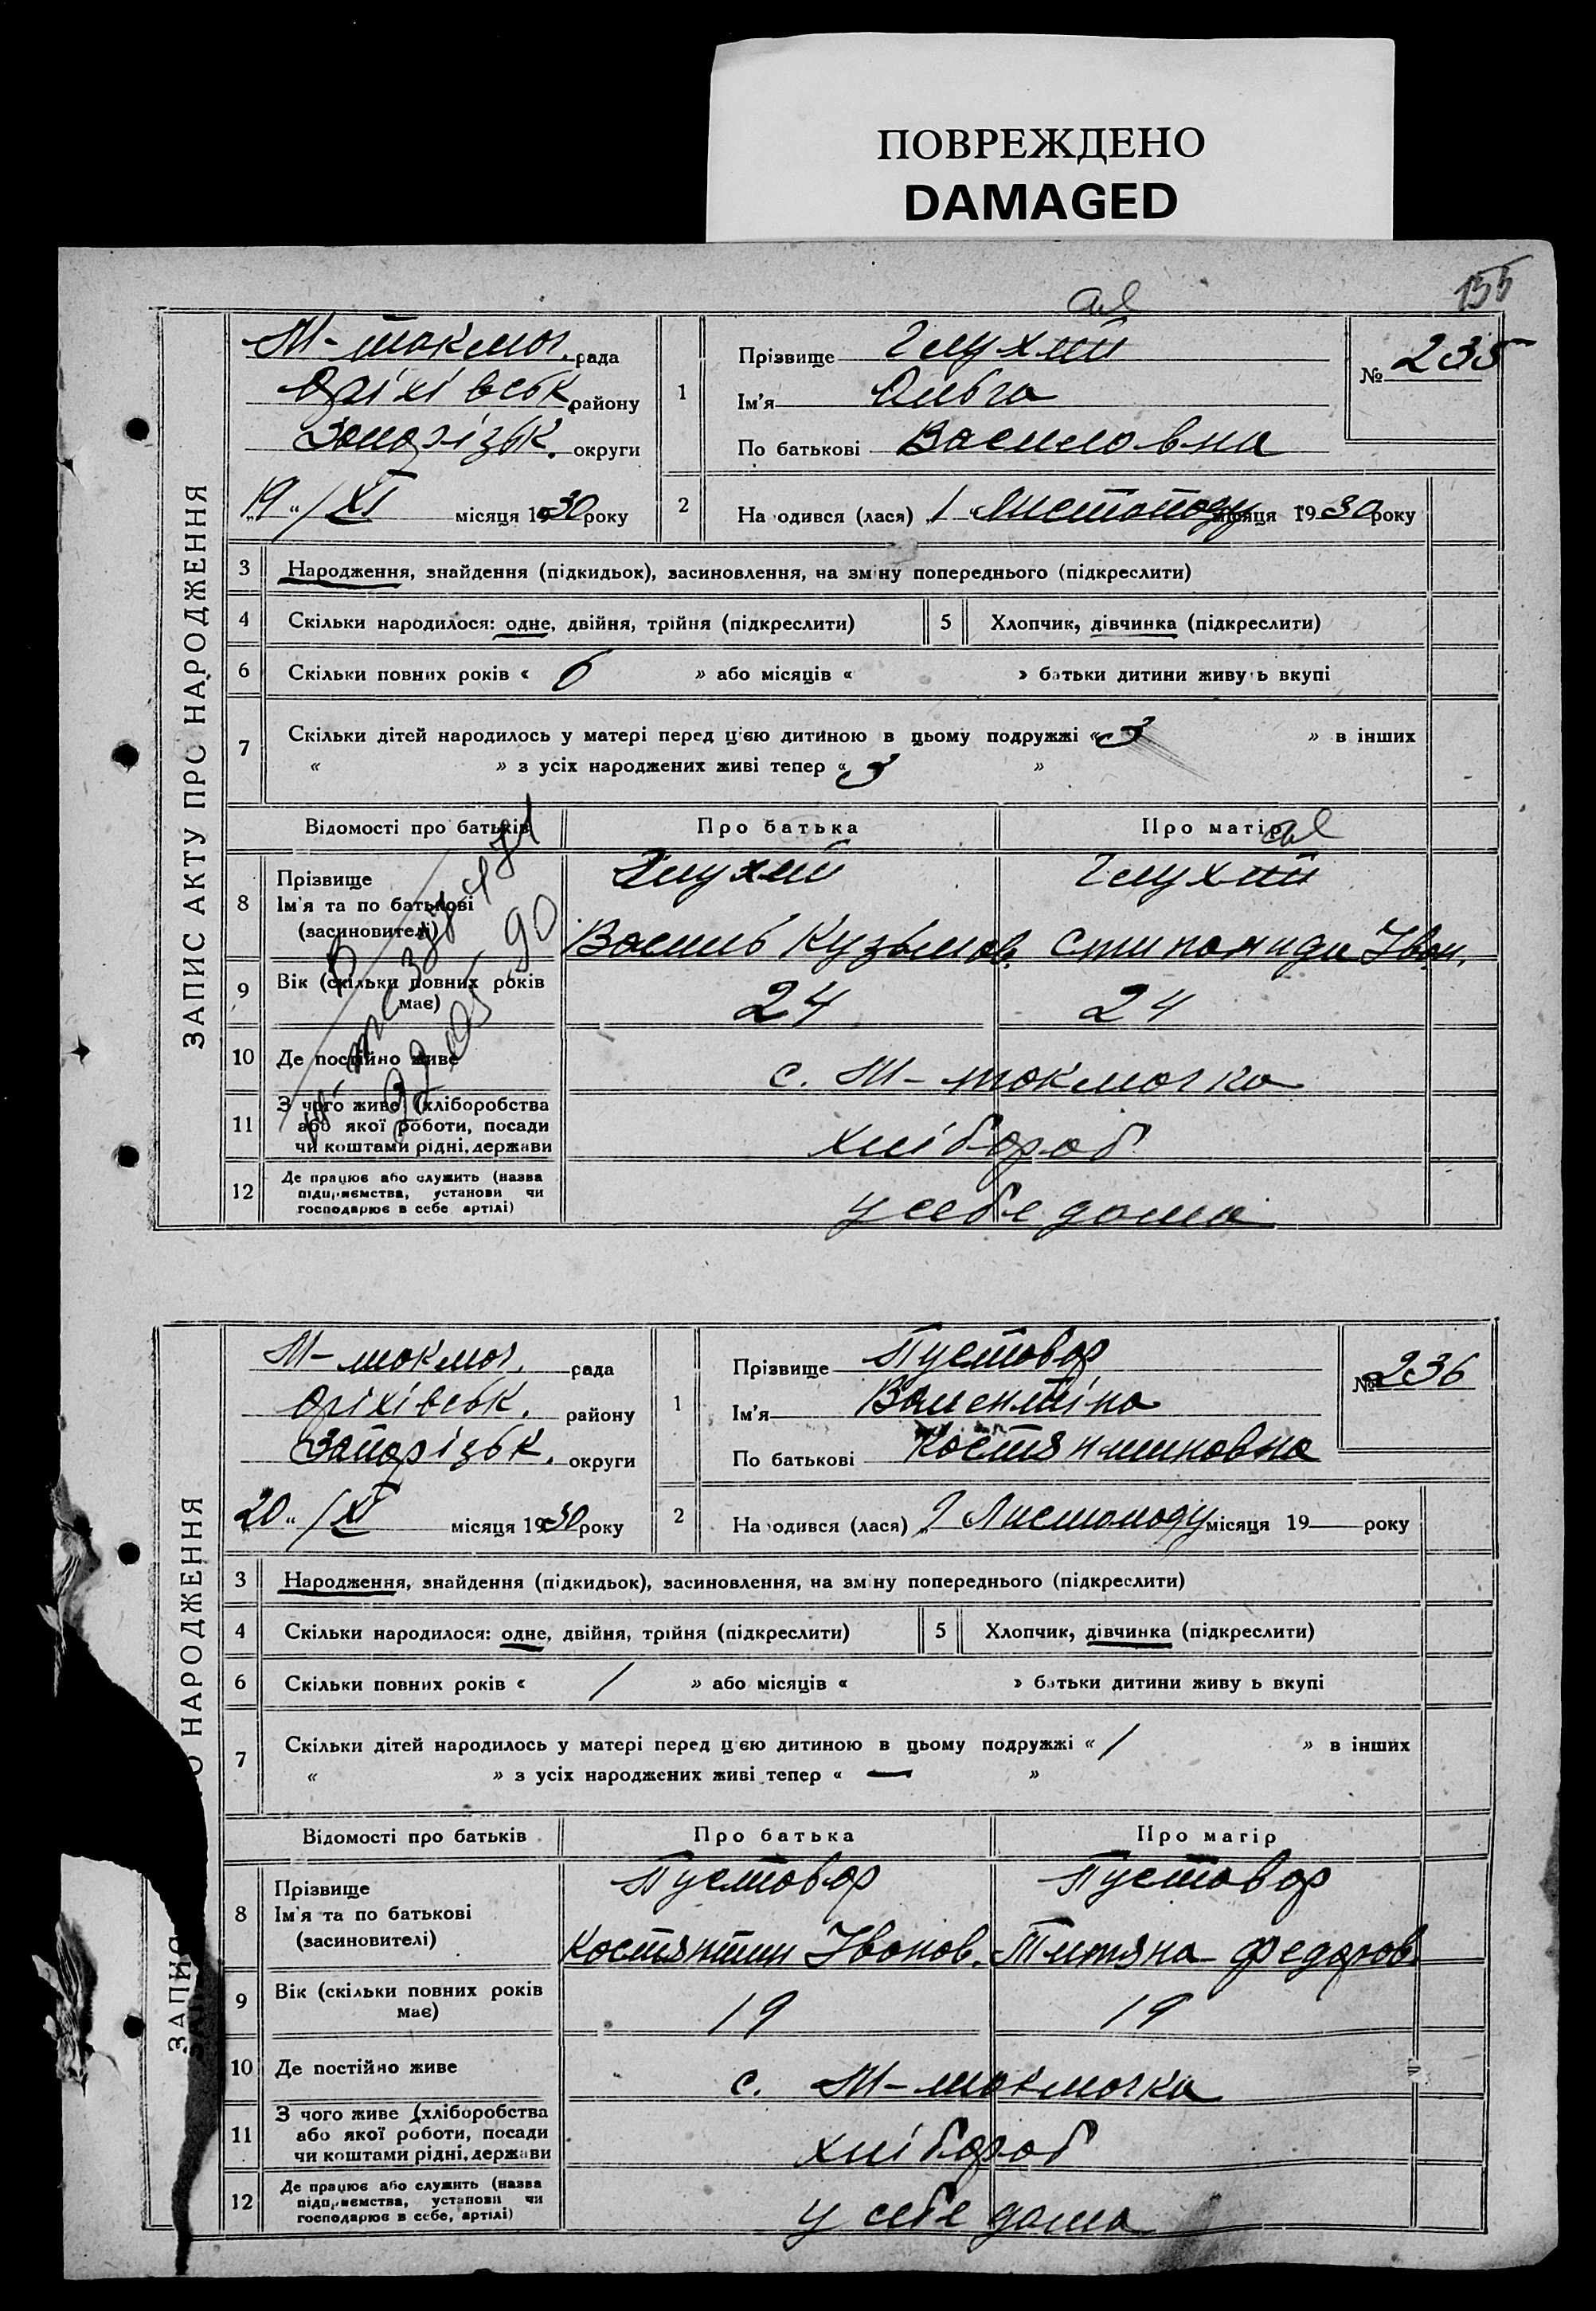 ПОВРЕЖДЕНО
DAMAGED
155
ая
ЗАПИС АКТУ ПРО НАРОДЖЕННЯ
М-токмач. рада
Оріхівськ. району
Запорізьк. округи
„19“ /XI місяця 1930 року
1
Прізвище Глухий
Ім'я Ольга
По батькові Василовна
№ 235
2
На одився (лася) „1“ Листопаду місяця 1930 року
3 Народження, знайдення (підкидьок), засиновлення, на зміну попереднього (підкреслити)
4 Скільки народилося: одне, двійня, трійня (підкреслити) 5 Хлопчик, дівчинка (підкреслити)
6 Скільки повних років « 6 » або місяців « » батьки дитини живуть вкупі
7 Скільки дітей народилось у матері перед цією дитиною в цьому подружжі « 3 » в інших
« » з усіх народжених живі тепер « 3 »
Відомості про батьків Про батька Про матір
ая
8 Прізвище Глухий Глухий
Ім'я та по батькові
(засиновителі) Василь Кузьмов. Іван.
9 Вік (скільки повних років має) 24 24
10 Де постійно живе с. М-токмачка
11 З чого живе (хліборобства
або якої роботи, посади
чи коштами рідні, держави хлібороб
12 Де працює або служить (назва
підприємства, установи чи
господарює в себе артілі) у себе дома
НАРОДЖЕННЯ
ЗАПИС
М-токмач. рада
Оріхівськ. району
Запорізьк. округи
20“ /XI місяця 1930 року
1
Прізвище Пустовар
Ім'я Валентіна
По батькові Костянтиновна
№ 236
2
На одився (лася) „ Листопаду місяця 19— року
3 Народження, знайдення (підкидьок), засиновлення, на зміну попереднього (підкреслити)
4 Скільки народилося: одне, двійня, трійня (підкреслити) 5 Хлопчик, дівчинка (підкреслити)
6 Скільки повних років « 1 » або місяців « » батьки дитини живу ь вкупі
7 Скільки дітей народилось у матері перед цією дитиною в цьому подружжі « 1 » в інших
« » з усіх народжених живі тепер « — »
Відомості про батьків Про батька Про матір
8 Прізвище Пустовар Пустовар
Ім'я та по батькові
(засиновителі) Костянтин Іванов. Титяна Федоров.
9 Вік (скільки повних років має) 19 19
10 Де постійно живе с. М-токмачка
11 З чого живе (хліборобства
або якої роботи, посади
чи коштами рідні, держави хлібороб
12 Де працює або служить (назва
підприємства, установи чи
господарює в себе, артілі) у себе дома